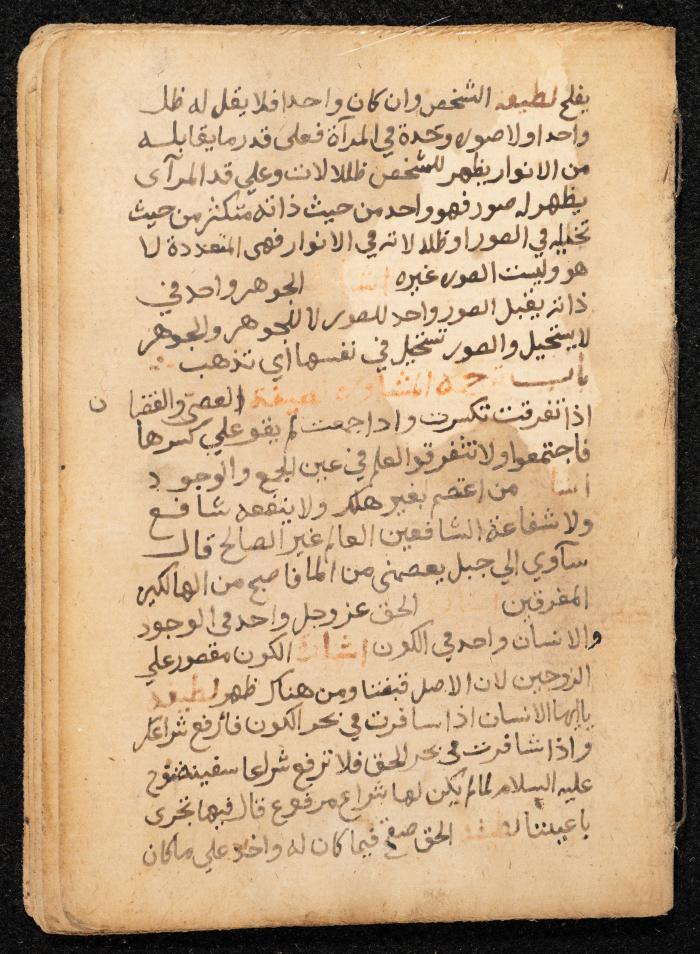 يفلح لطيفة الشخص وان كان واحدا فلا يقل له ظل
واحد او لا صوره وحدة في المرآة فعلى قدر ما يقابله
من الانوار يظهر للشخص ظلالات وعلي قد المرآى
يظهر له صور فهو واحد من حيث ذاته متكثر من حيث
تخليه في الصور او ظلالاته في الانوار فهى المتعددة لا
هو وليست الصوره غيره اشارة الجوهر واحد في
ذاته يقبل الصور واحد للصور لا للجوهر والجوهر
لا يستحيل والصور تستحيل في نفسها اي تذهب
باب المشاورة لطيفة العصى والفقها ن
اذا تفرقت تكسرت واذا جمعت لم يقو علي كسرها
فاجتمعوا ولا تتفرقوا العلم في عين الجمع والوجود
اشا من اعتصم بغير هلك ولا ينفعه شافع
ولا شفاعة الشافعين العالم غير الصالح قال
سآوي الي جبل يعصمنى من الما فاصبح من الهالكين
المغرقين الحق عز وجل واحد في الوجود
والانسان واحد في الكون اشارة الكون مقصور علي
الزوجين لان الاصل قبضتا ومن هناك ظهر لطيفة
ياايها الانسان اذا سافرت في بحر الكون فارفع شراعك
واذا سافرت في بحر الحق فلا ترفع شراعا سفينة نوح
عليه السلام لما لم يكن لها شراع مرفوع قال فيها تجرى
باعيننا لطيفة الحق فيما كان له واخذ علي ما كان